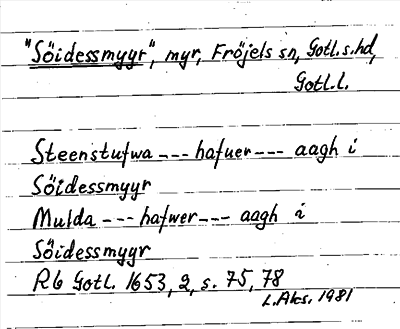 "Söidessmyyr", myr, Fröjels sn, Gotl. s. hd,
Gotl. l.
Steenstufwa --- hafuer --- aagh i
Söidessmyyr
Mulda --- hafwer --- aagh i
Söidessmyyr
Rb Gotl. 1653, 2, s. 75, 78
L. Aks. 1981